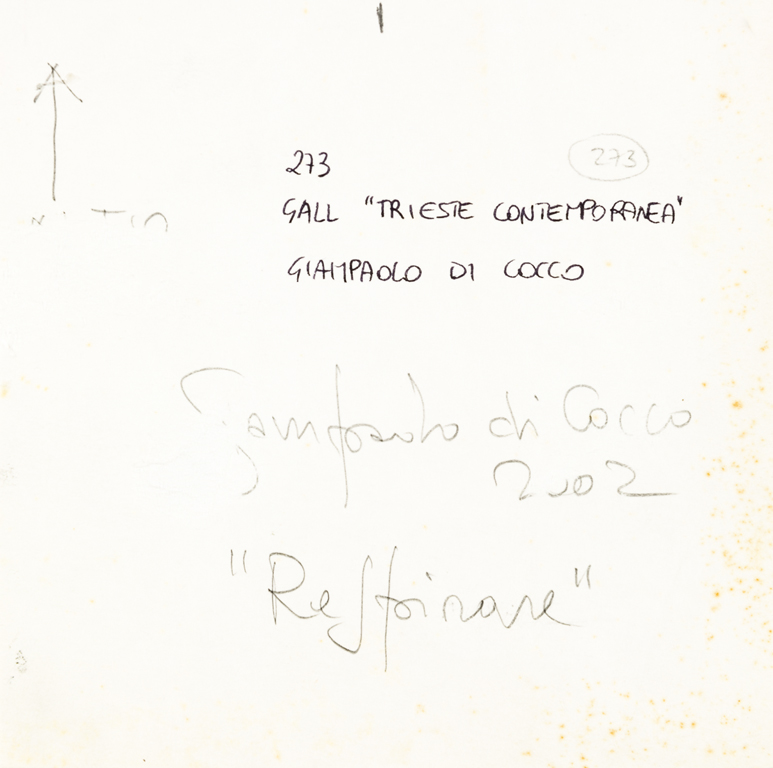 273 273
GALL "TRIESTE CONTEMPORANEA"
GIAMPAOLO DI COCCO
Giampaolo di Cocco
2002
"Respirare"